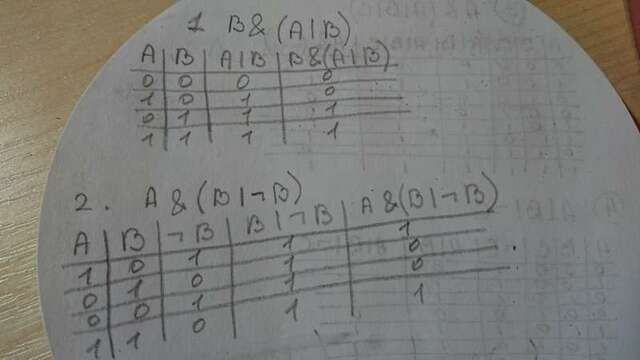 1 B&(A|B)
A | B | A|B | B&(A|B)
0 | 0 | 0 | 0
1 | 0 | 1 | 0
0 | 1 | 1 | 1
1 | 1 | 1 | 1
2. A&(B|¬B)
A | B | ¬B | B|¬B | A&(B|¬B)
1 | 0 | 1 | 1 | 1
0 | 1 | 0 | 1 | 0
0 | 0 | 1 | 1 | 0
1 | 1 | 0 | 1 | 1